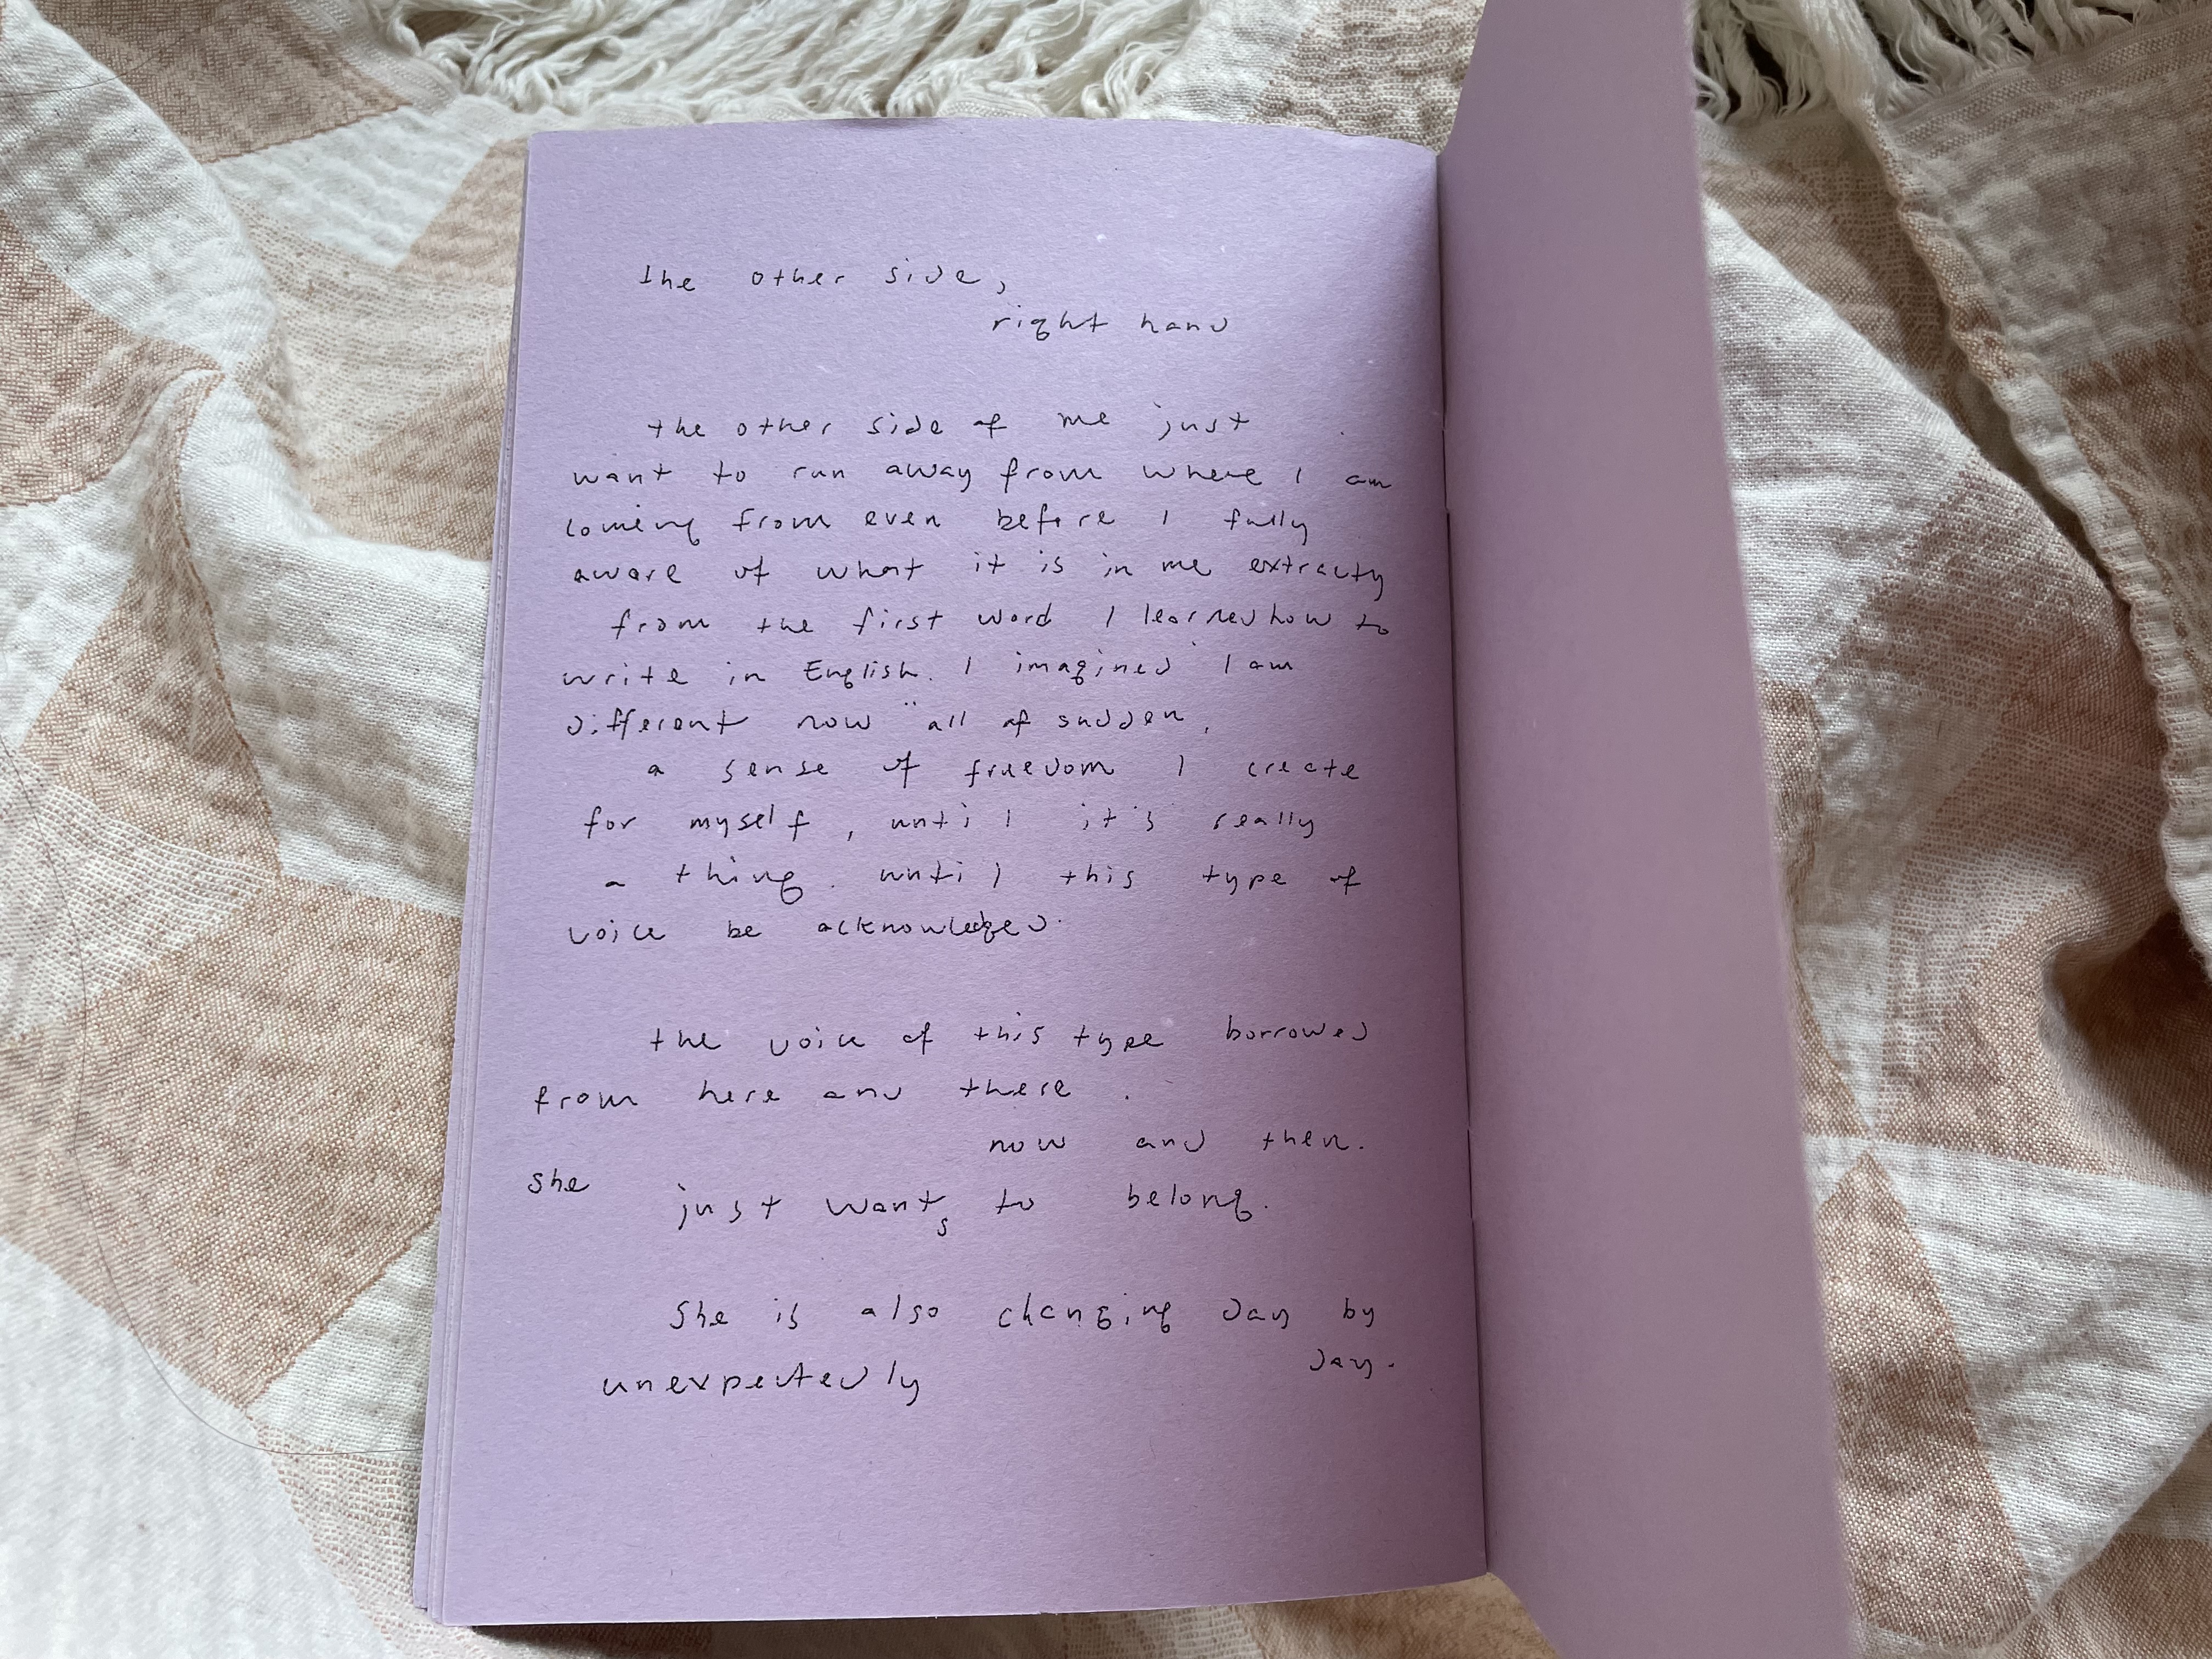 the other side,
right hand
the other side of me just
want to run away from where I am
coming from even before I fully
aware of what it is in me
from the first word I learned how to
write in English. I imagined "I am
different now" all of sudden.
a sense of freedom I create
for myself, until it's really
a thing. until this type of
voice be acknowledged.
the voice of this type borrowed
from here and there.
now and then.
she
just wants to belong.
She is also changing day by
day.
unexpectedly